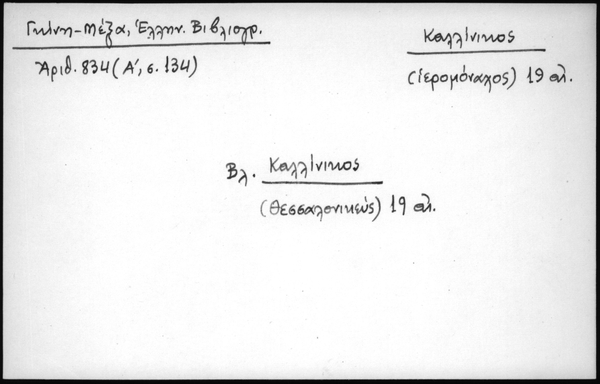 Γκίνη-Μέξα, Ἑλλην. Βιβλιογρ.
Ἀριθ. 834 (Α', σ. 134)
Καλλίνικος
(ἱερομόναχος) 19 αἰ.
Βλ. Καλλίνικος
(Θεσσαλονικεύς) 19 αἰ.